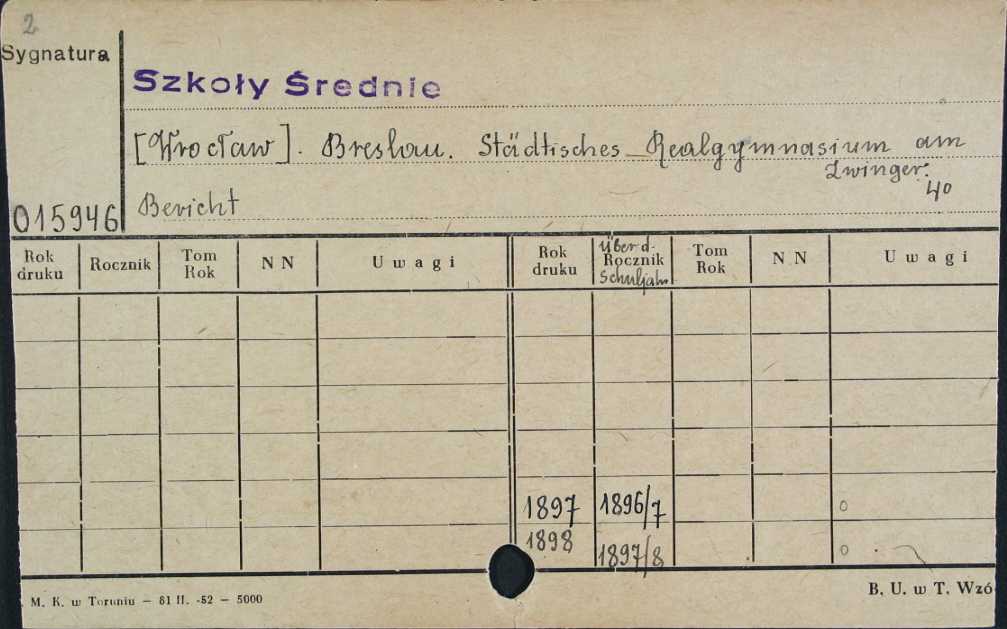 2
Sygnatura
Szkoły Średnie
[Wrocław]. Breslau. Städtisches Realgymnasium am
Zwinger.
40
015946
Bericht
Rok druku Rocznik Tom Rok N N Uwagi Rok druku über d. Rocznik Schuljahr Tom Rok N N Uwagi
1897 1896/7 o
1898 1897/8 o
M. K. w Toruniu — 81 II. -52 — 5000
B. U. w T. Wzó